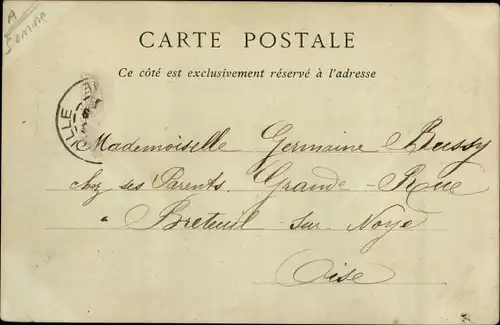 A
Somme
CARTE POSTALE
Ce côté est exclusivement réservé à l'adresse
Mademoiselle Germaine Bussy
chez ses Parents. Grande-Rue
à Breteuil sur Noye
Oise